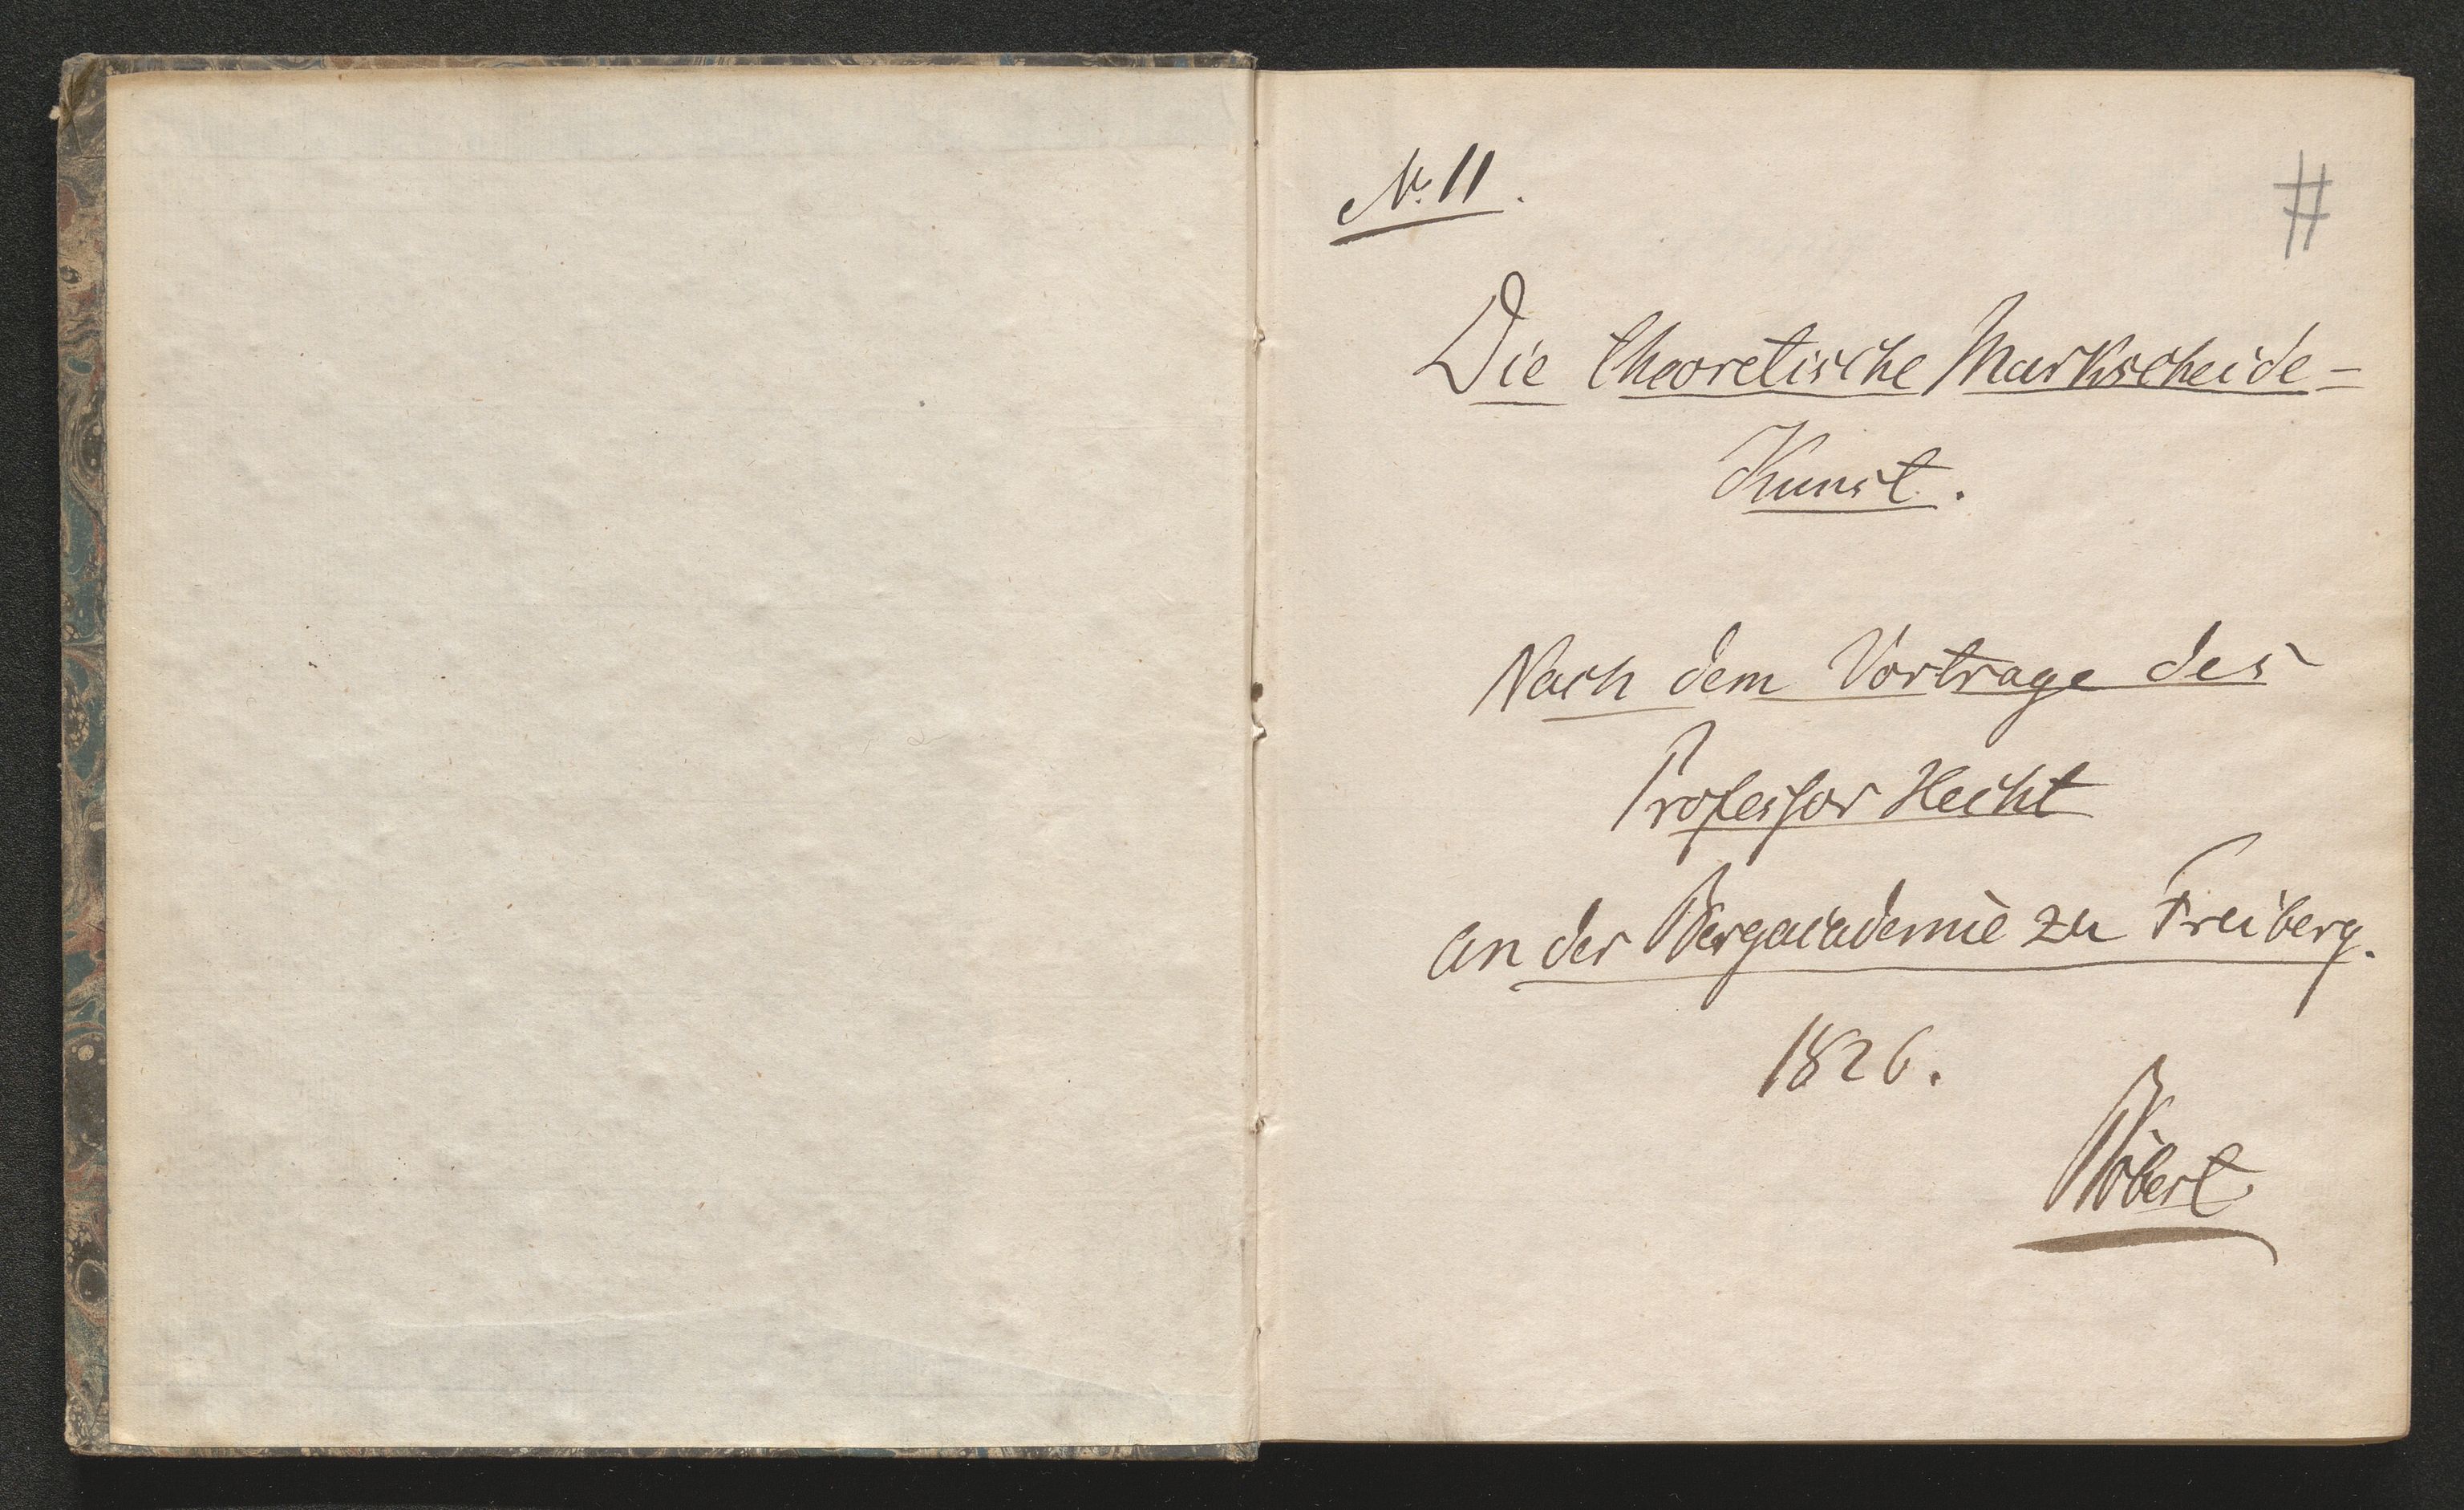 №. 11.
#
Die theoretische Markscheide=
Kunst.
Nach dem Vortrage des
Professor Hecht
an der Bergacademie zu Freiberg.
1826.
Böbert